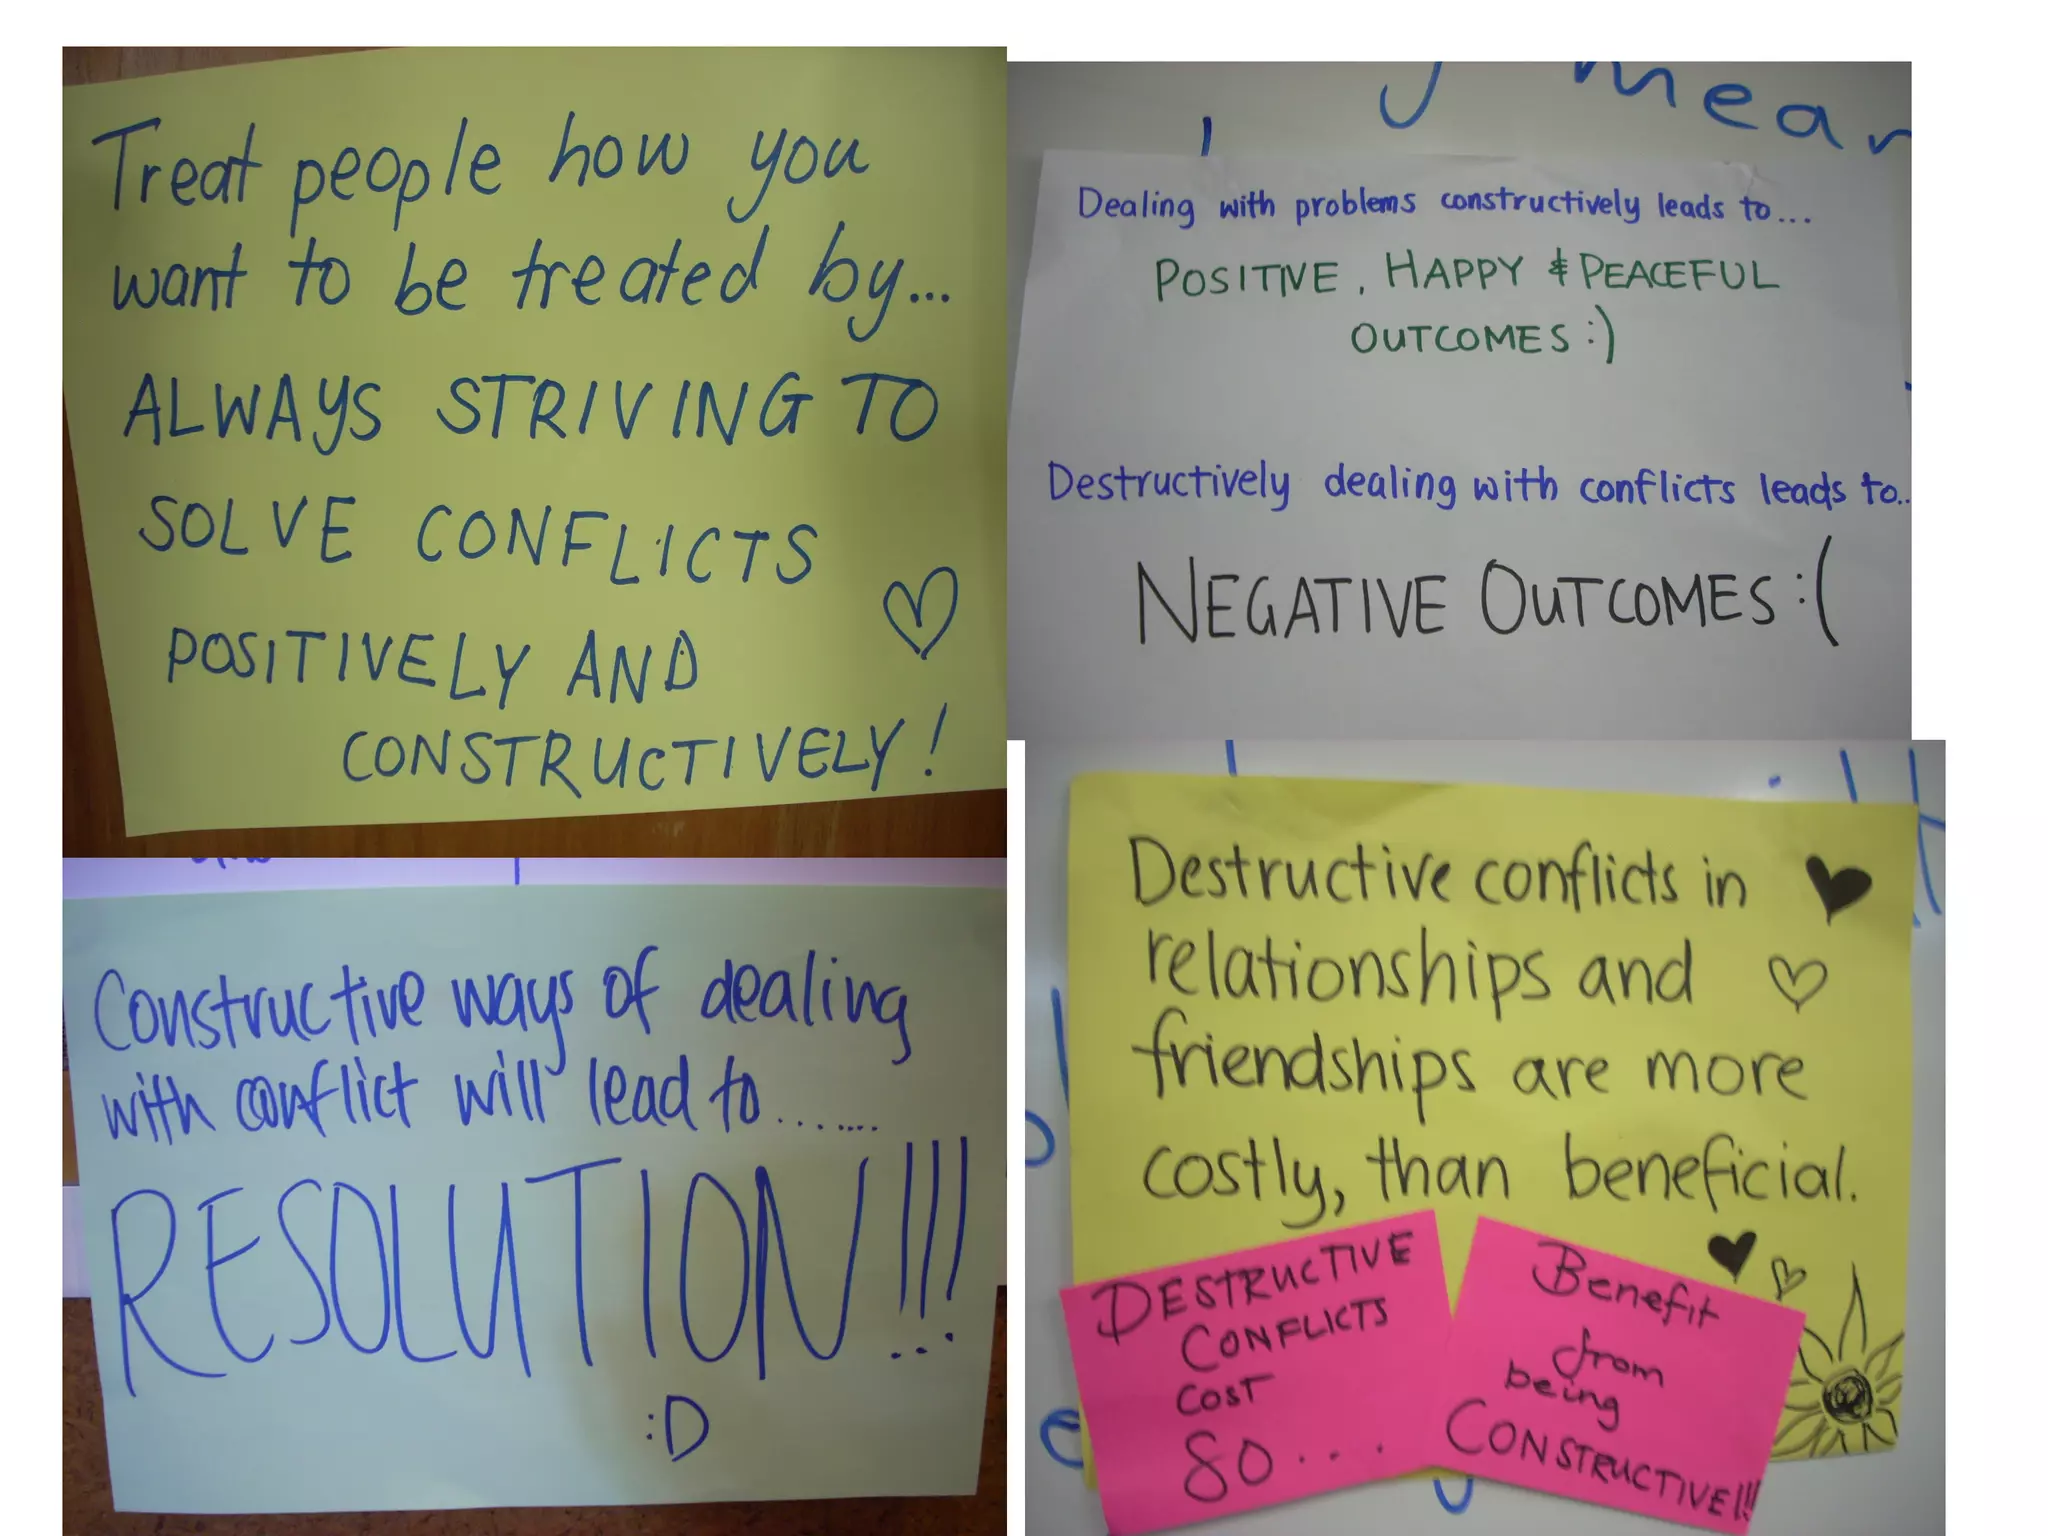 Treat people how you
want to be treated by...
ALWAYS STRIVING TO
SOLVE CONFLICTS
POSITIVELY AND
CONSTRUCTIVELY!
mean
Dealing with problems constructively leads to...
POSITIVE, HAPPY & PEACEFUL
OUTCOMES :)
Destructively dealing with conflicts leads to..
NEGATIVE OUTCOMES :(
Constructive ways of dealing
with conflict will lead to.......
RESOLUTION!!!
:D
Destructive conflicts in
relationships and
friendships are more
costly, than beneficial.
DESTRUCTIVE
CONFLICTS
COST
SO...
Benefit
from
being
CONSTRUCTIVE!!!